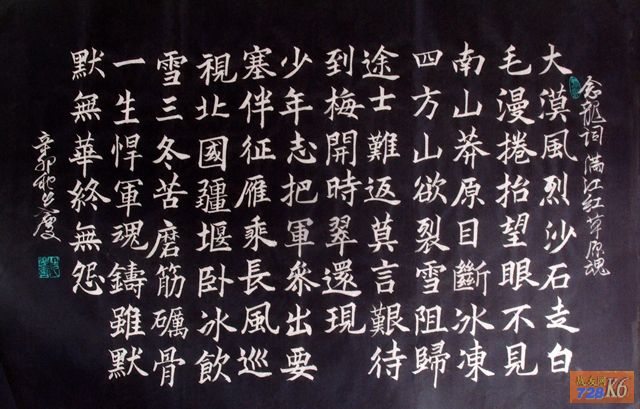 念龍词 满江红 草原魂
大漠風烈沙石走白
毛漫捲抬望眼不見
南山莽原目斷冰凍
四方山欲裂雪阻歸
途士難返莫言艱待
到梅開時翠還現
少年志把軍參出要
塞伴征雁乘長風巡
視北國疆堰卧冰飲
雪三冬苦磨筋礪骨
一生悍軍魂鑄雖默
默無華終無怨
辛卯秋
战友网
729K6